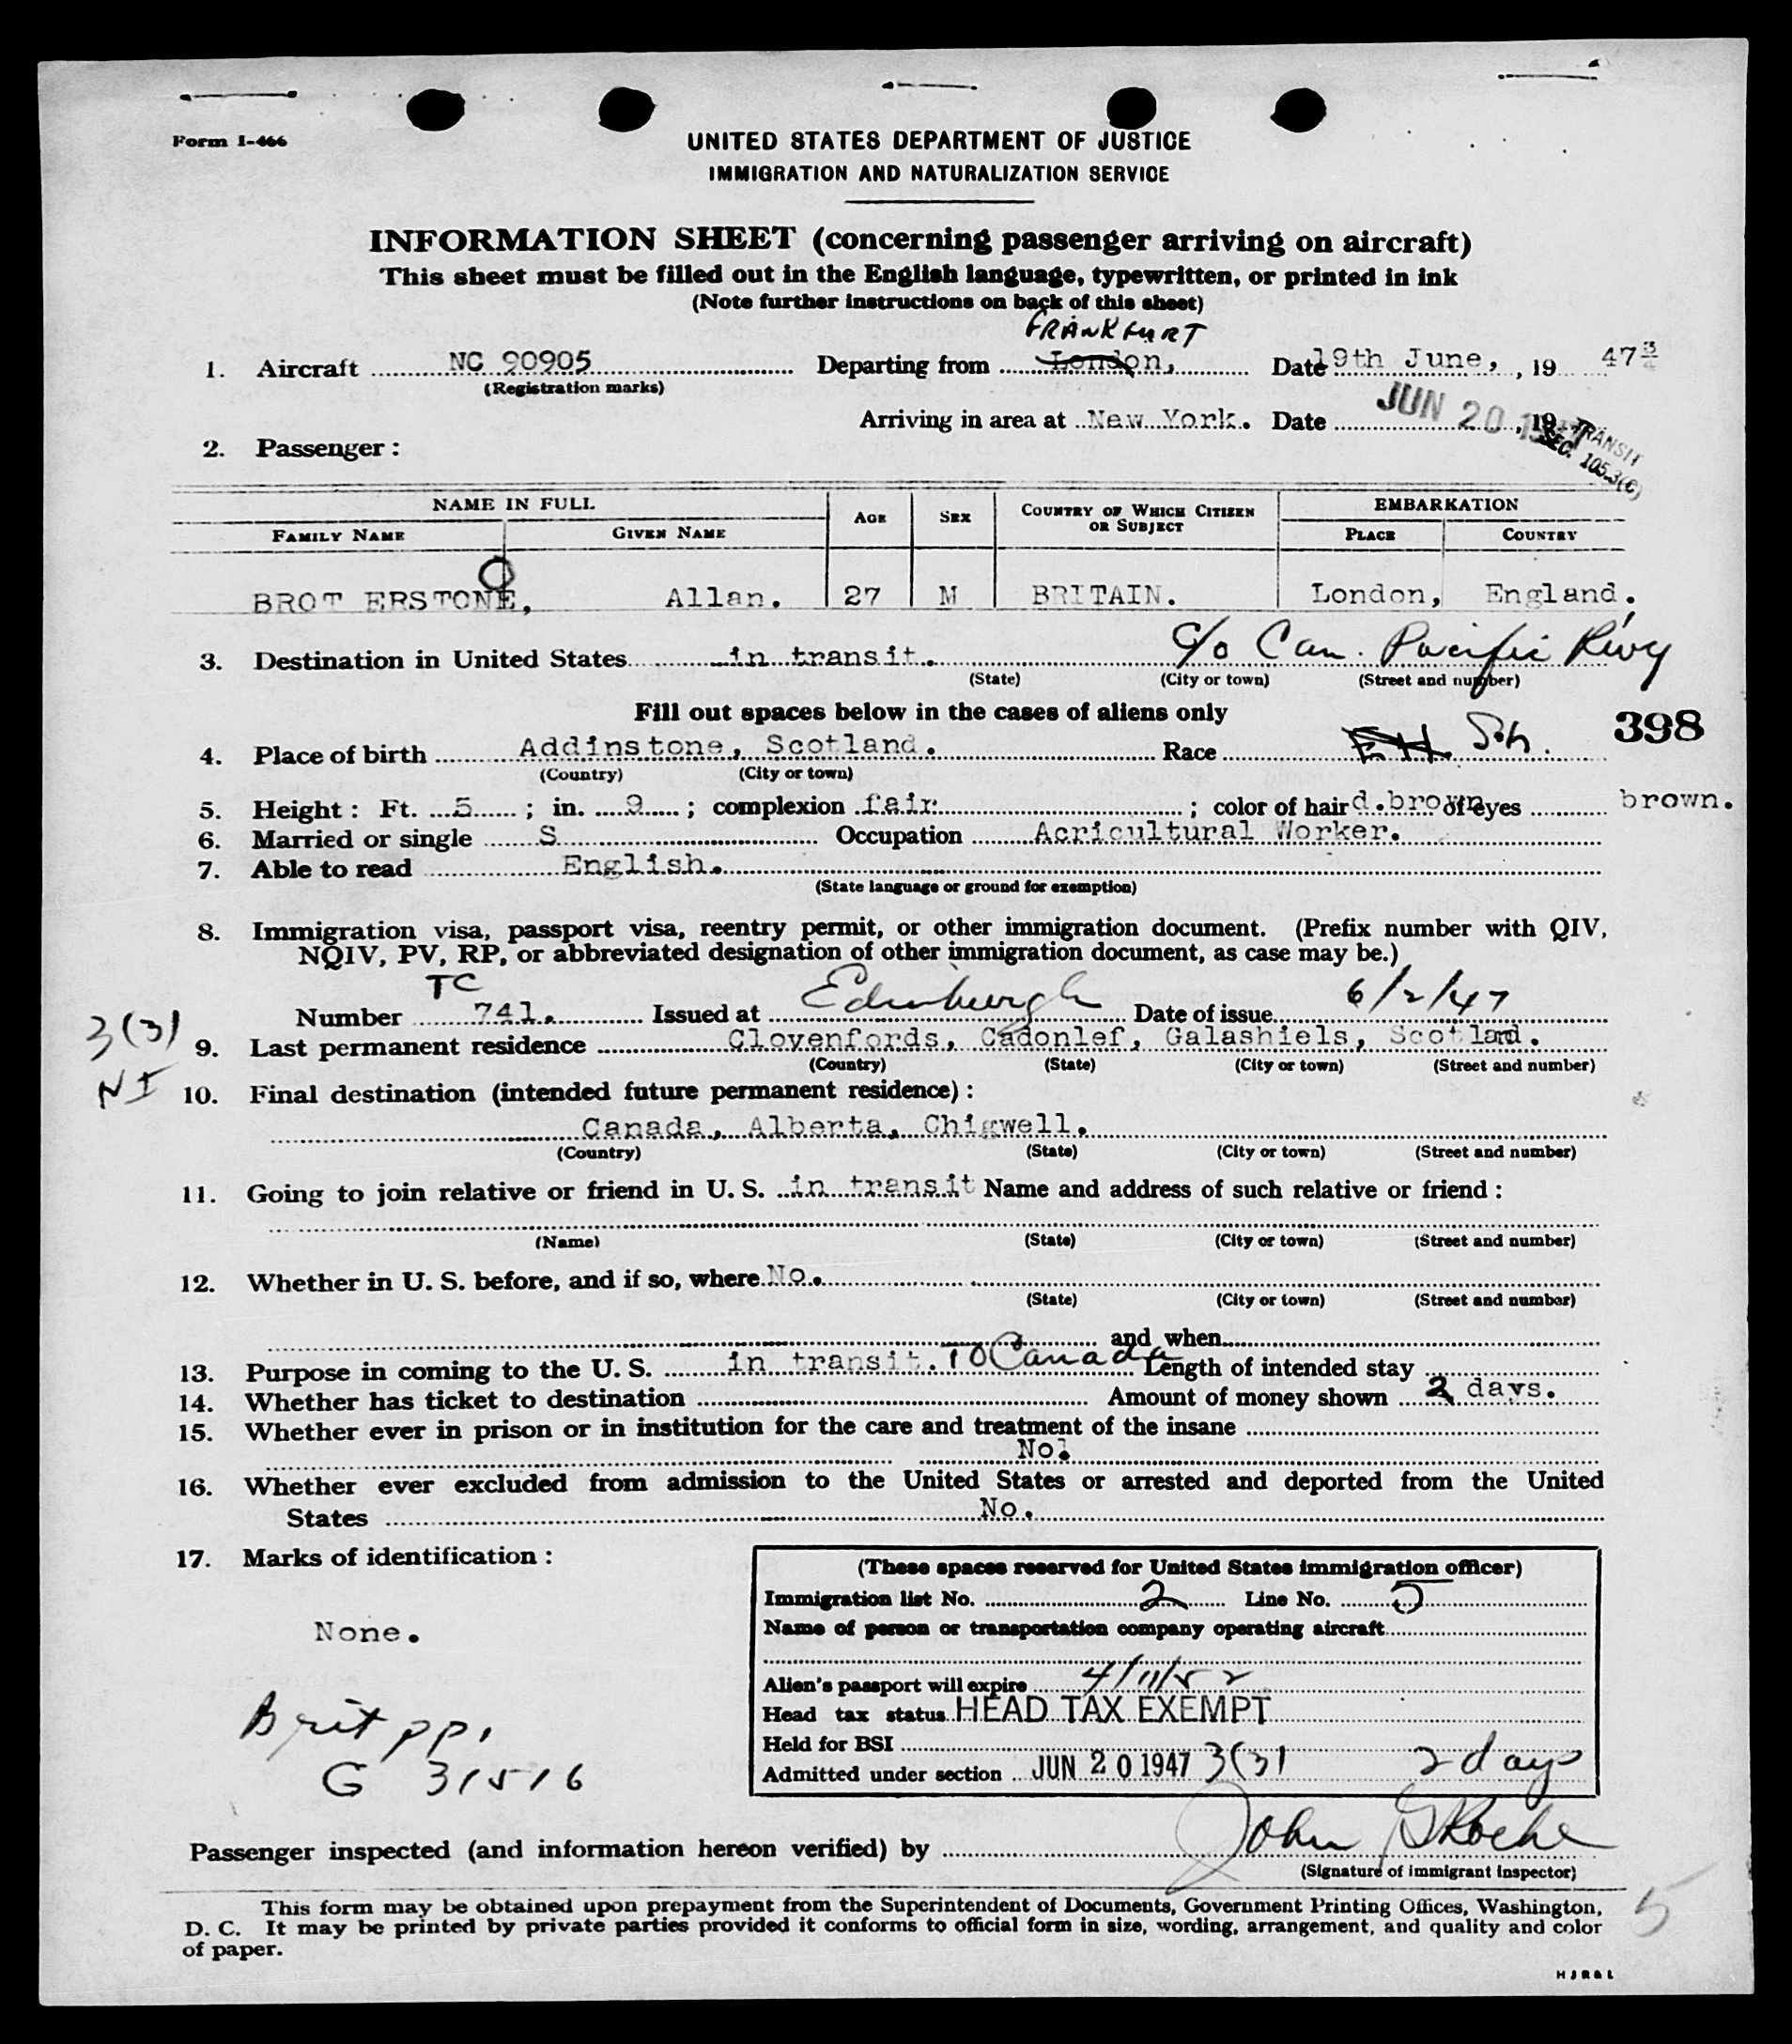 Form I-466
UNITED STATES DEPARTMENT OF JUSTICE
IMMIGRATION AND NATURALIZATION SERVICE
INFORMATION SHEET (concerning passenger arriving on aircraft)
This sheet must be filled out in the English language, typewritten, or printed in ink
(Note further instructions on back of this sheet)
FRANKFURT
1. Aircraft NC 90905 Departing from London, Date 19th June, , 19 47
(Registration marks)
Arriving in area at New York. Date JUN 20 1947 , 19
TRANSIT
SEC. 105.3(C)
2. Passenger :
NAME IN FULL AGE SEX COUNTRY OF WHICH CITIZEN OR SUBJECT EMBARKATION
FAMILY NAME GIVEN NAME PLACE COUNTRY
BROT ERSTONE, Allan. 27 M BRITAIN. London, England.
3. Destination in United States in transit. c/o Can. Pacific
(State) (City or town) (Street and number)
Fill out spaces below in the cases of aliens only
398
4. Place of birth Addinstone, Scotland. Race
(Country) (City or town)
5. Height : Ft. 5 ; in. 9 ; complexion fair ; color of hair d.brown of eyes brown.
6. Married or single S Occupation Acricultural Worker.
7. Able to read English.
(State language or ground for exemption)
8. Immigration visa, passport visa, reentry permit, or other immigration document. (Prefix number with QIV,
NQIV, PV, RP, or abbreviated designation of other immigration document, as case may be.)
TC
Number 741. Issued at Edinburgh Date of issue 6/2/47
3(3)
9. Last permanent residence Clovenfords, Cadonlef, Galashiels, Scotland.
(Country) (State) (City or town) (Street and number)
NI
10. Final destination (intended future permanent residence) :
Canada, Alberta, Chigwell.
(Country) (State) (City or town) (Street and number)
11. Going to join relative or friend in U. S. in transit Name and address of such relative or friend :
(Name) (State) (City or town) (Street and number)
12. Whether in U. S. before, and if so, where No.
(State) (City or town) (Street and number)
and when
13. Purpose in coming to the U. S. in transit. TO Canada Length of intended stay
14. Whether has ticket to destination Amount of money shown 2 days.
15. Whether ever in prison or in institution for the care and treatment of the insane
No.
16. Whether ever excluded from admission to the United States or arrested and deported from the United
States No.
17. Marks of identification :
None.
Brit pp.
G 31516
(These spaces reserved for United States immigration officer)
Immigration list No. 2 Line No. 5
Name of person or transportation company operating aircraft
Alien's passport will expire 4/11/52
Head tax status HEAD TAX EXEMPT
Held for BSI
Admitted under section JUN 20 1947 3(3) 2 days
Passenger inspected (and information hereon verified) by John G Roche
(Signature of immigrant inspector)
This form may be obtained upon prepayment from the Superintendent of Documents, Government Printing Offices, Washington,
D. C. It may be printed by private parties provided it conforms to official form in size, wording, arrangement, and quality and color
of paper.
5
HJR&L